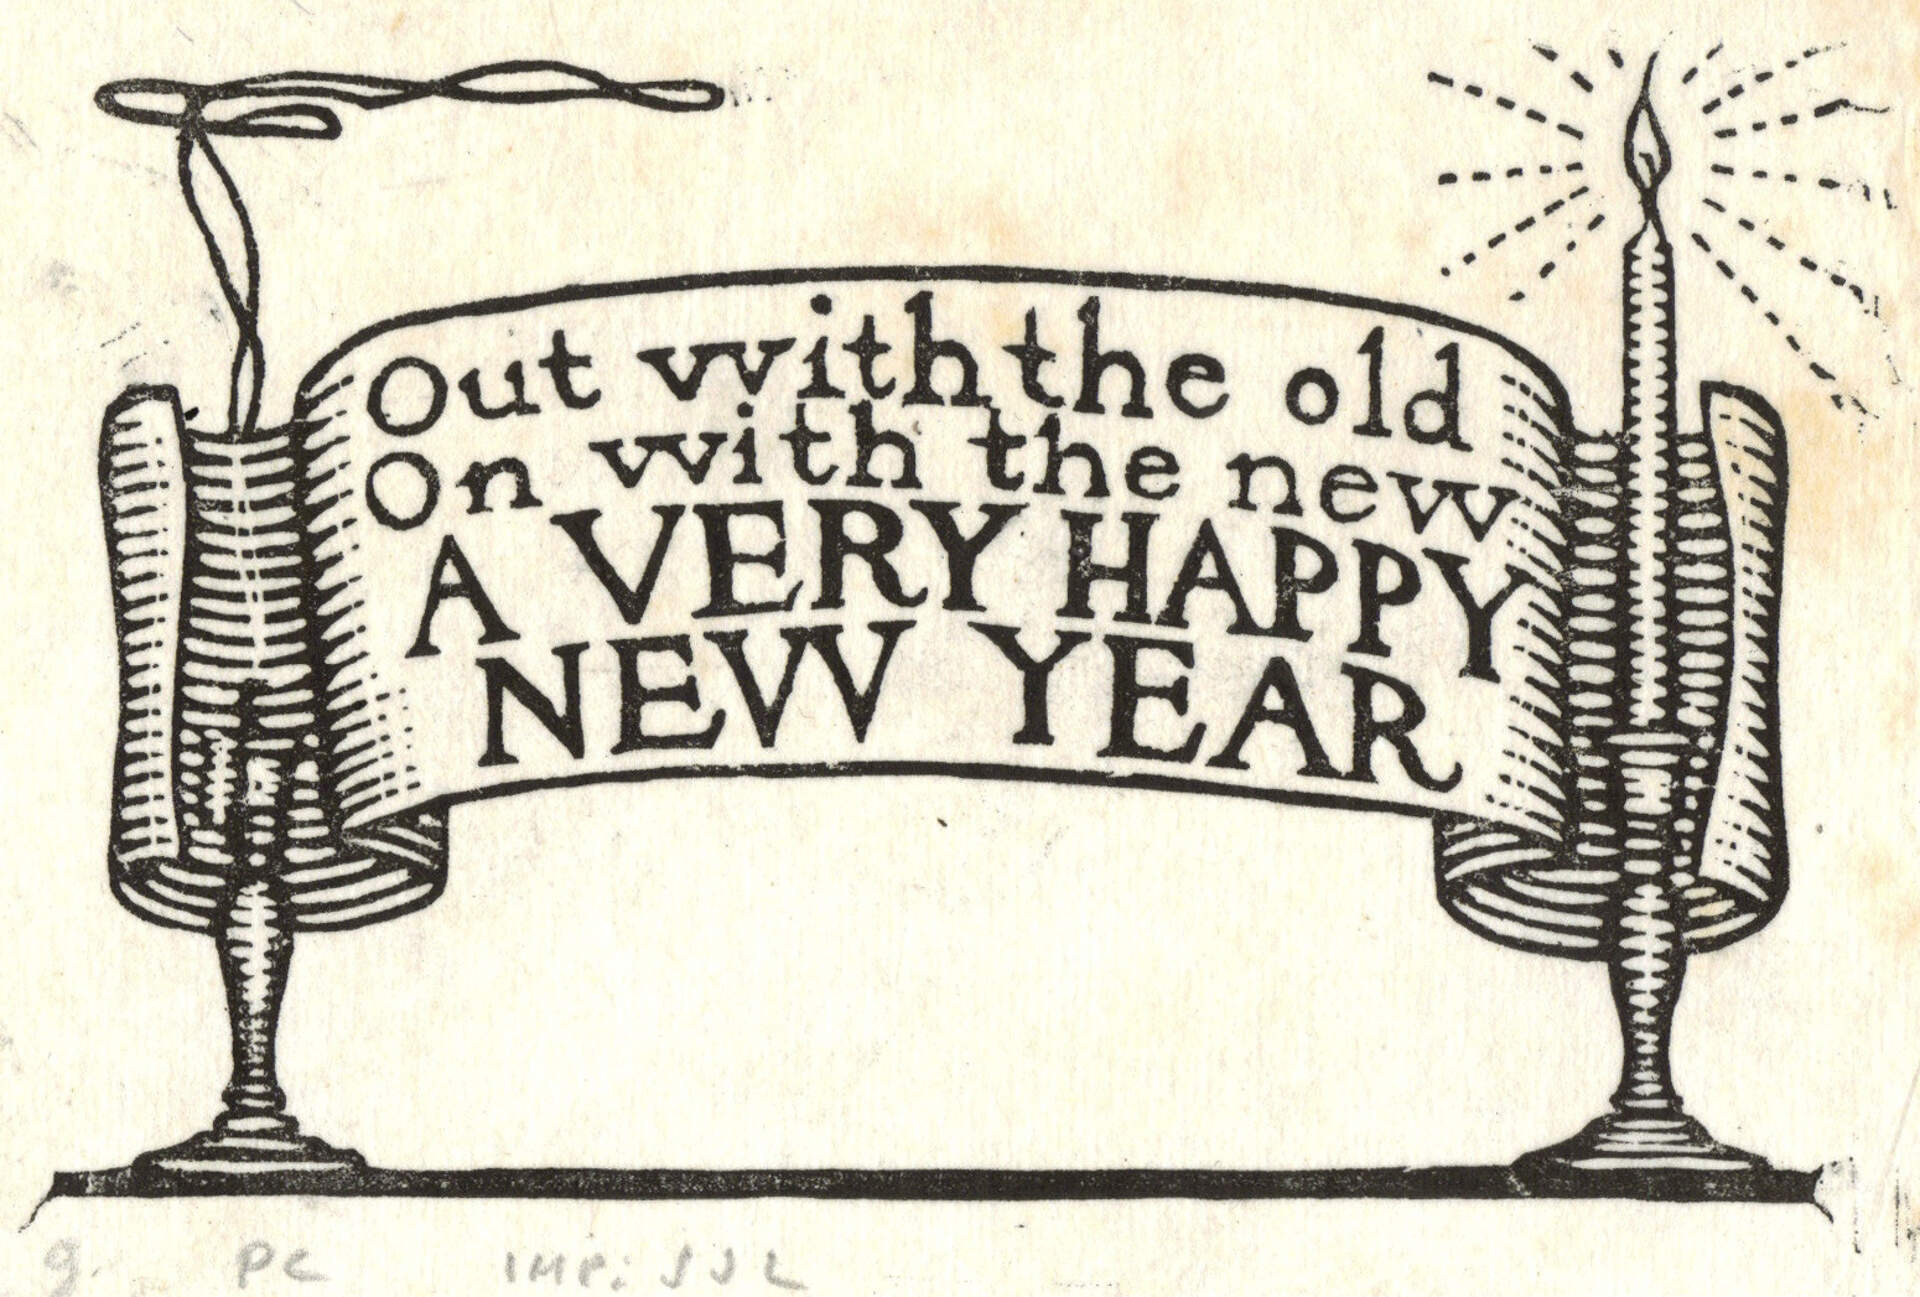 Out with the old
On with the new
A VERY HAPPY
NEW YEAR
g. PC IMP: JJL